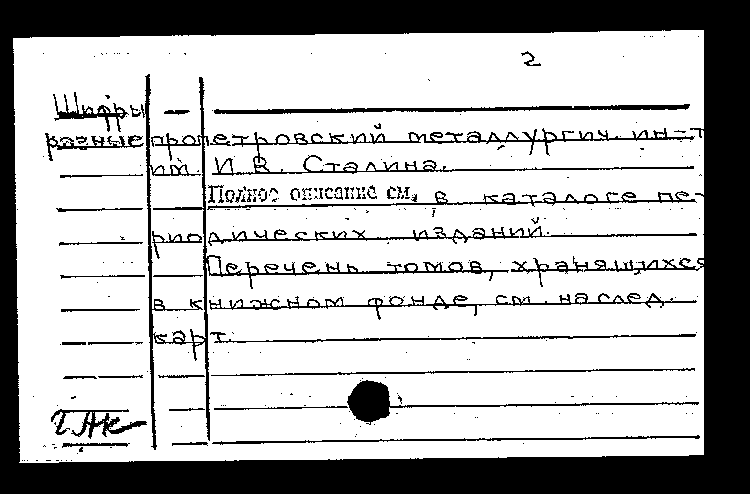 2
Шифры
разные пропетровский металлургич. ин-т
им. И. В. Сталина.
Полное описание см. в каталоге пе-
риодических изданий.
Перечень томов, хранящихся
в книжном фонде, см. на след.
карт.